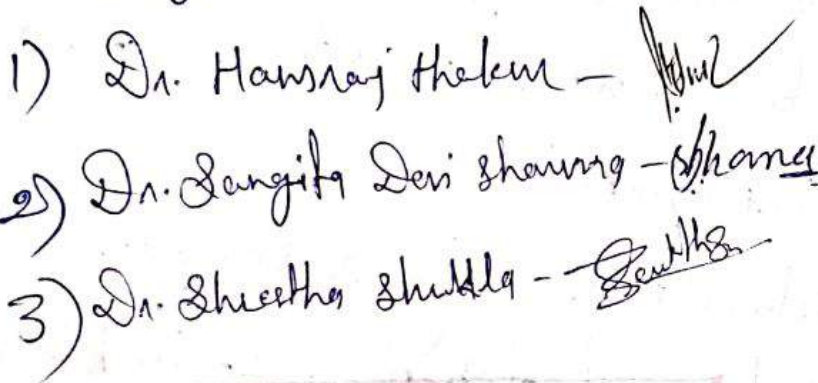 1) Dr. Hansraj Thakur -
2) Dr. Sangita Devi Sharma - Sharma
3) Dr. Shrestha Shukla -